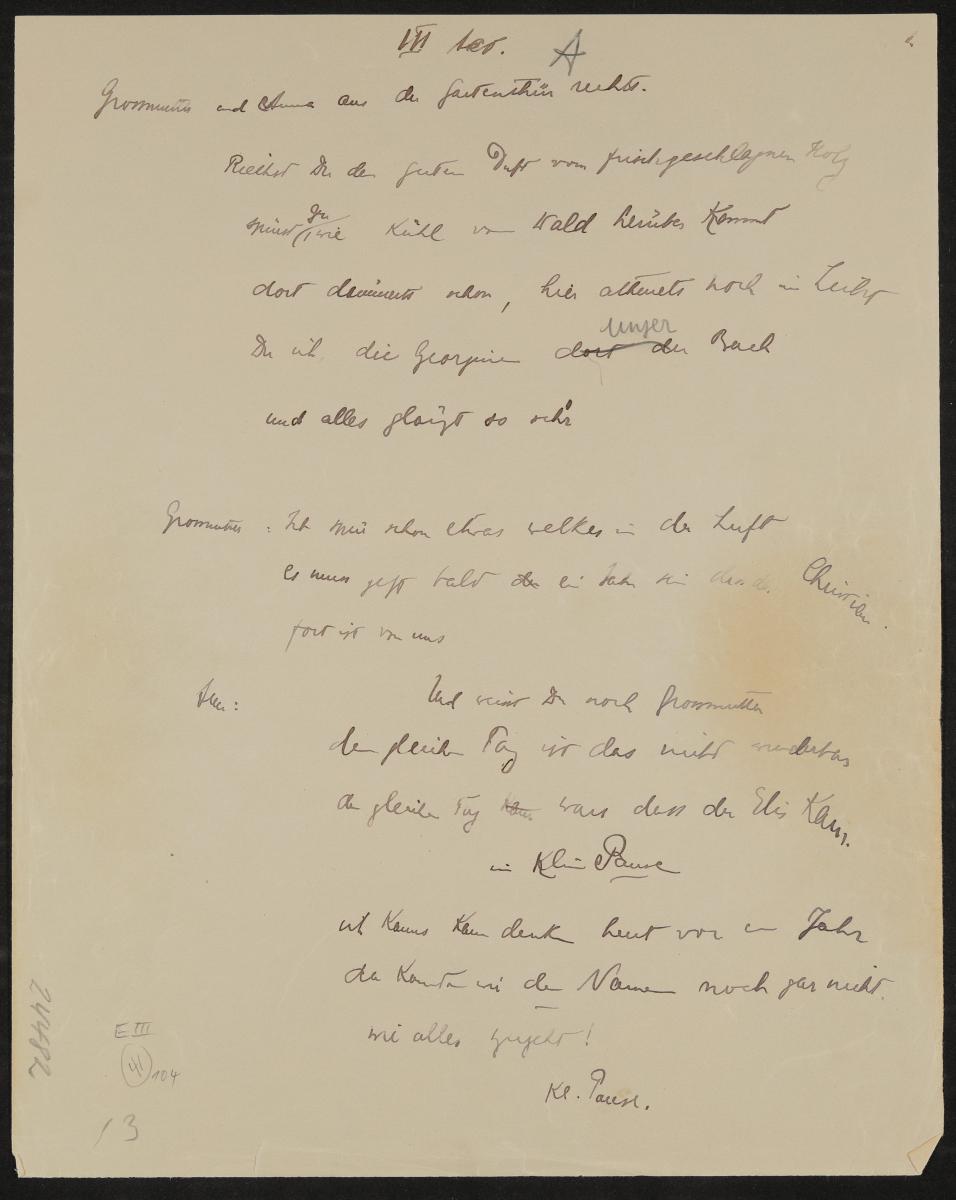 III Act. A
Grossmutter und Anna aus der Gartenthür rechts.
Riechst Du den guten Duft vom frischgeschlagnen Holz
spürst Du wie kühl vom Wald herüber kommt
dort dämmerts schon, hier athmets noch im Licht
Du ich, die Georginen dort unser der Bach
und alles glänzt so sehr
Grossmutter: Ich spür schon etwas welkes in der Luft
es muss jetzt bald der ein Jahr sein dass der Christian
fort ist von uns
Anna: Und weisst Du noch Grossmutter
den gleichen Tag ist das nicht wunderbar
den gleichen Tag kam wars dass der Elis kam.
eine kleine Pause
ich kanns kaum denken heut vor ein Jahr
da kannten wir den Namen noch gar nicht.
wie alles zugeht!
Kl. Pause.
24482
E III
41 104
13